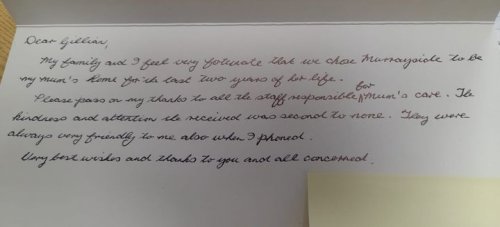 Dear Gillian,
My family and I feel very fortunate that we chose Murrayside to be
my mum's home for the last two years of her life.
Please pass on my thanks to all the staff responsible for Mum's care. The
kindness and attention she received was second to none. They were
always very friendly to me also when I phoned.
Very best wishes and thanks to you and all concerned.